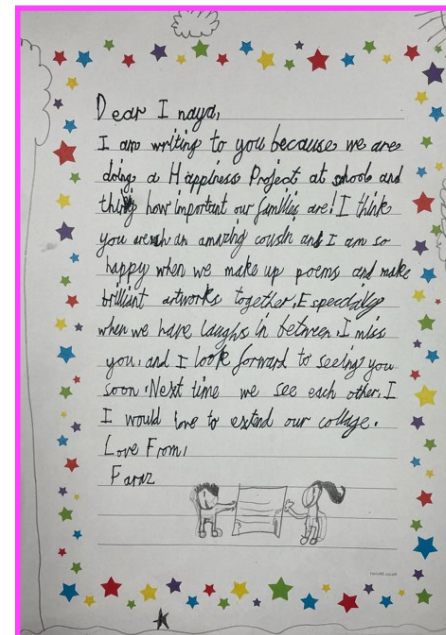 Dear Inaya,
I am writing to you because we are
doing a Happiness Project at school and
how important our families are! I think
you are an amazing cousin and I am so
happy when we make up poems and make
brilliant artworks together. Especially
when we have laughs in between. I miss
you, and I look forward to seeing you
soon. Next time we see each other, I
I would love to extend our collage.
Love From,
Faraz